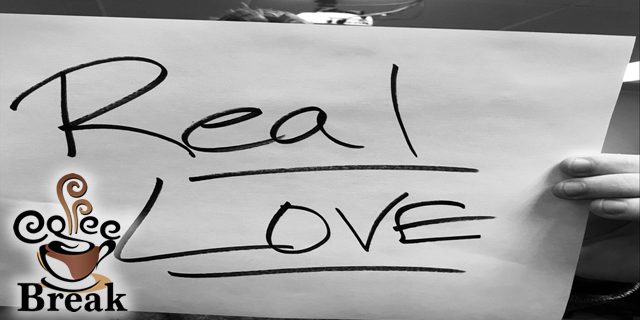 Real
LOVE
Coffee
Break